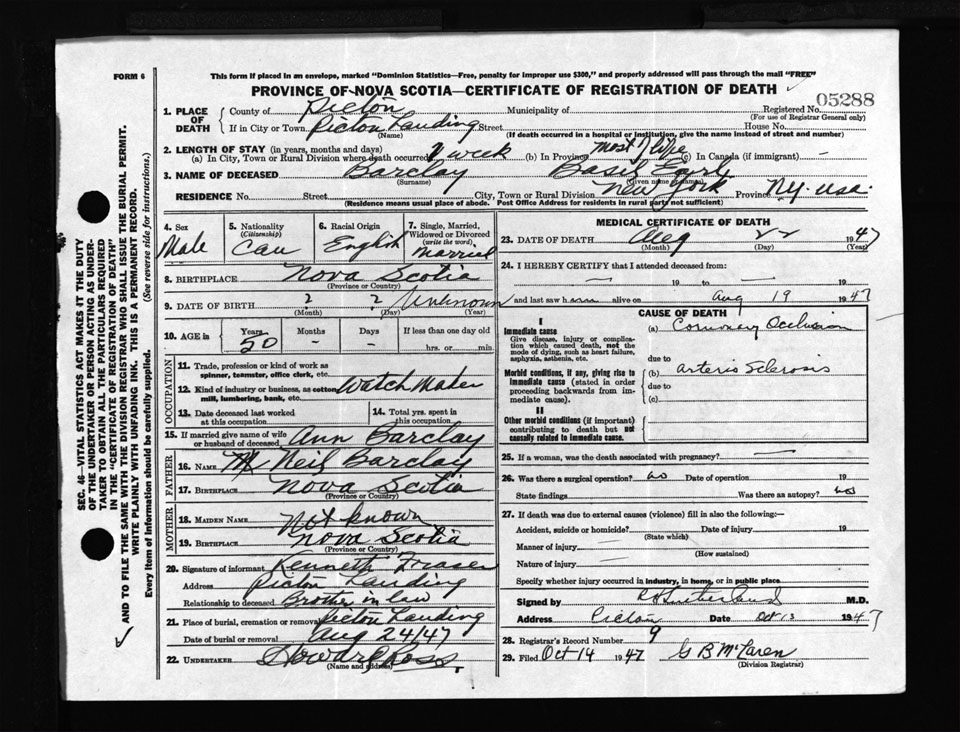 FORM 6
This form if placed in an envelope, marked "Dominion Statistics—Free, penalty for improper use $300," and properly addressed will pass through the mail "FREE"
PROVINCE OF NOVA SCOTIA—CERTIFICATE OF REGISTRATION OF DEATH
05288
1. PLACE OF DEATH
County of Picton Municipality of Registered No.
(For use of Registrar General only)
If in City or Town Picton Landing Street House No.
(Name) (If death occurred in a hospital or institution, give the name instead of street and number)
2. LENGTH OF STAY (in years, months and days)
(a) In City, Town or Rural Division where death occurred 1 week (b) In Province most of life (c) In Canada (if immigrant) —
3. NAME OF DECEASED Barclay Basil Earl
(Surname) (Given name or names)
RESIDENCE No. Street City, Town or Rural Division New York Province N.Y. USA.
(Residence means usual place of abode. Post Office Address for residents in rural parts not sufficient)
4. Sex Male
5. Nationality (Citizenship) Can
6. Racial Origin English
7. Single, Married, Widowed or Divorced (write the word) Married
8. BIRTHPLACE Nova Scotia
(Province or Country)
9. DATE OF BIRTH ? ? Unknown
(Month) (Day) (Year)
10. AGE in Years 50 Months - Days - If less than one day
hrs. or min.
OCCUPATION
11. Trade, profession or kind of work as spinner, teamster, office clerk, etc.
12. Kind of industry or business, as cotton mill, lumbering, bank, etc. Watch Maker
13. Date deceased last worked at this occupation
14. Total yrs. spent in this occupation
15. If married give name of wife or husband of deceased Ann Barclay
FATHER
16. NAME Neil Barclay
17. BIRTHPLACE Nova Scotia
(Province or Country)
MOTHER
18. MAIDEN NAME Not Known
19. BIRTHPLACE Nova Scotia
(Province or Country)
20. Signature of informant Kenneth Fraser
Address Picton Landing
Relationship to deceased Brother in law
21. Place of burial, cremation or removal Picton Landing
Date of burial or removal Aug 24/47
22. UNDERTAKER Howard Ross.
(Name and address)
MEDICAL CERTIFICATE OF DEATH
23. DATE OF DEATH Aug 22 1947
(Month) (Day) (Year)
24. I HEREBY CERTIFY that I attended deceased from:
— 19 to — 19
and last saw h alive on Aug 19 1947
CAUSE OF DEATH
I
Immediate cause
Give disease, injury or complication which caused death, not the mode of dying, such as heart failure, asphyxia, asthenia, etc.
(a) Coronary Occlusion
due to
Morbid conditions, if any, giving rise to immediate cause (stated in order proceeding backwards from immediate cause).
(b) Arterio Sclerosis
due to
(c)
II
Other morbid conditions (if important) contributing to death but not causally related to immediate cause.
25. If a woman, was the death associated with pregnancy? —
26. Was there a surgical operation? no Date of operation 19
State findings Was there an autopsy?
27. If death was due to external causes (violence) fill in also the following:—
Accident, suicide or homicide? Date of injury 19
(State which)
Manner of injury —
(How sustained)
Nature of injury —
Specify whether injury occurred in industry, in home, or in public place
Signed by Sutherland M.D.
Address Picton Date Oct 13 1947
28. Registrar's Record Number 9
29. Filed Oct 14 1947 G B McLaren
(Division Registrar)
SEC. 46—VITAL STATISTICS ACT MAKES IT THE DUTY
OF THE UNDERTAKER OR PERSON ACTING AS UNDER-
TAKER TO OBTAIN ALL THE PARTICULARS REQUIRED
IN THE "CERTIFICATE OF REGISTRATION OF DEATH"
AND TO FILE THE SAME WITH THE DIVISION REGISTRAR WHO SHALL ISSUE THE BURIAL PERMIT.
WRITE PLAINLY WITH UNFADING INK. THIS IS A PERMANENT RECORD.
Every item of information should be carefully supplied. (See reverse side for instructions.)